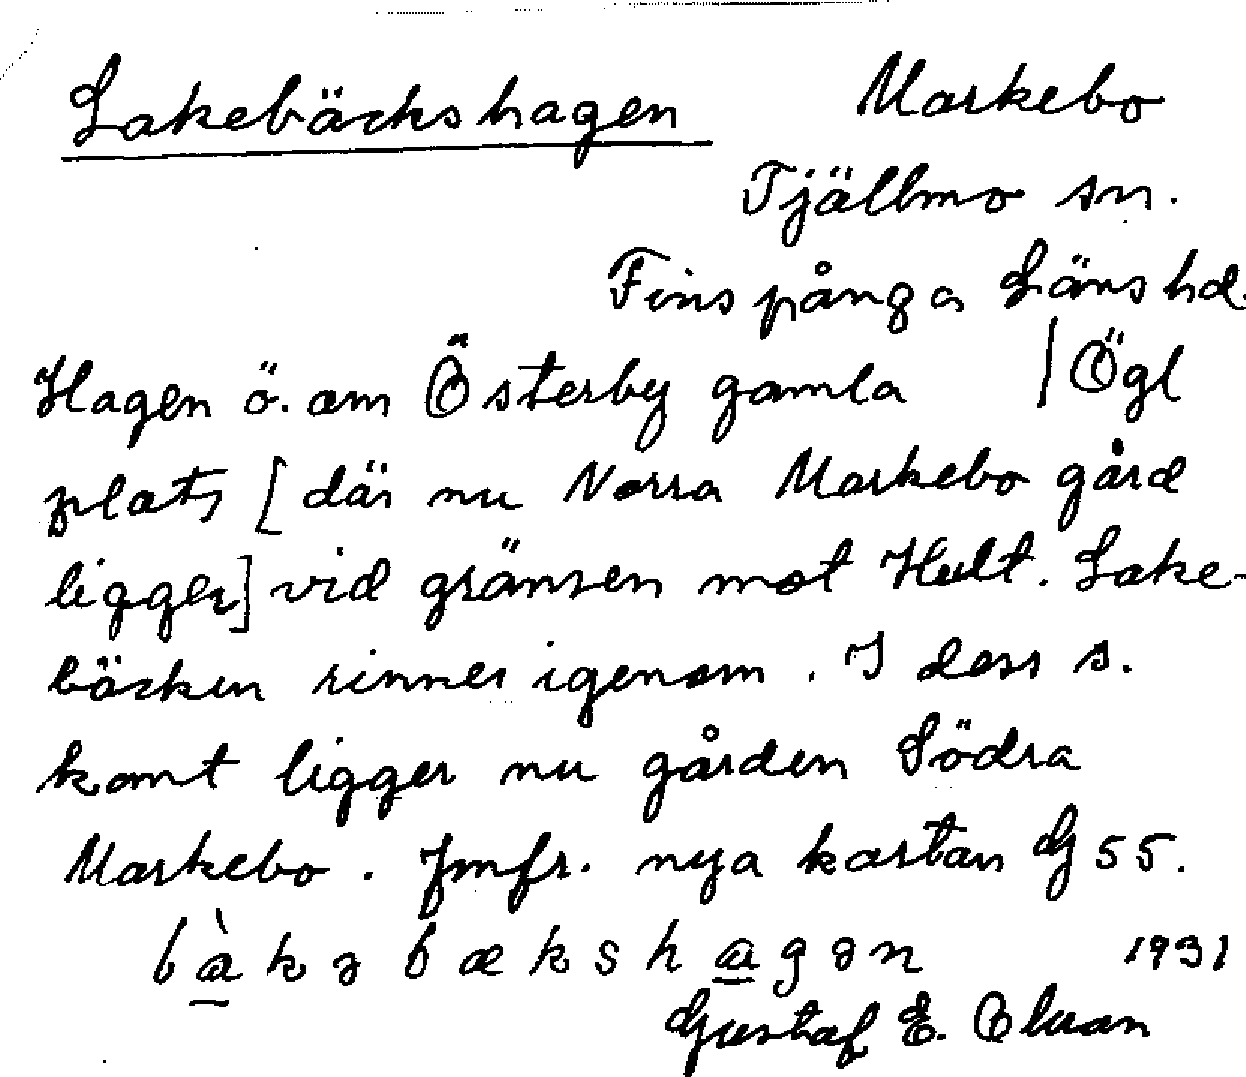 Lakebäckshagen Markebo
Tjällmo sn.
Finspånga Läns hd.
Hagen ö. om Österby gamla / Ögl
plats [där nu Norra Markebo gård
ligger] vid gränsen mot Hult. Lake-
bäcken rinner igenom. I dess s.
kant ligger nu gården Södra
Markebo. Jmfr. nya kartan G 55.
làkəbækshagən 1931
Gustaf E.